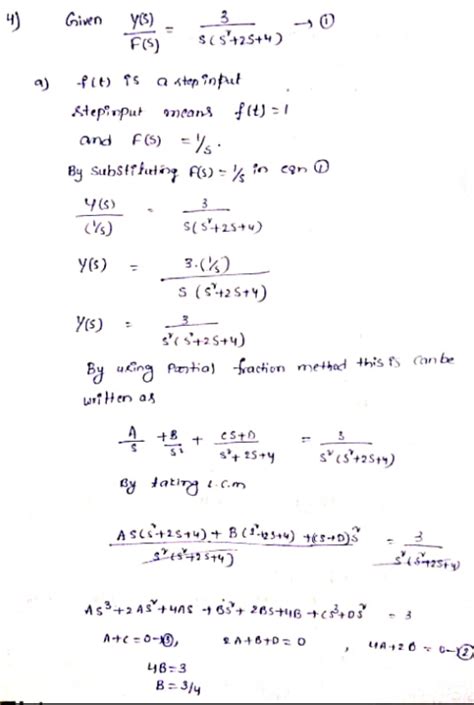 4) Given Y(S)/F(S) = 3/S(S²+2S+4) → ①
a) f(t) is a step input
step input means f(t) = 1
and F(S) = 1/S.
By substituting F(S) = 1/S in eqn ①
Y(S)/(1/S) = 3/S(S²+2S+4)
Y(S) = 3.(1/S)/S(S²+2S+4)
Y(S) = 3/S²(S²+2S+4)
By using Partial fraction method this is can be
written as
A/S + B/S² + CS+D/S²+2S+4 = 3/S²(S²+2S+4)
By taking L.C.M
AS(S²+2S+4) + B(S²+2S+4) + (CS+D)S²/S²(S²+2S+4) = 3/S²(S²+2S+4)
AS³+2AS²+4AS + BS²+2BS+4B + CS³+DS² = 3
A+C = 0 – ③, 2A+B+D = 0 , 4A+2B = 0 – ②
4B = 3
B = 3/4